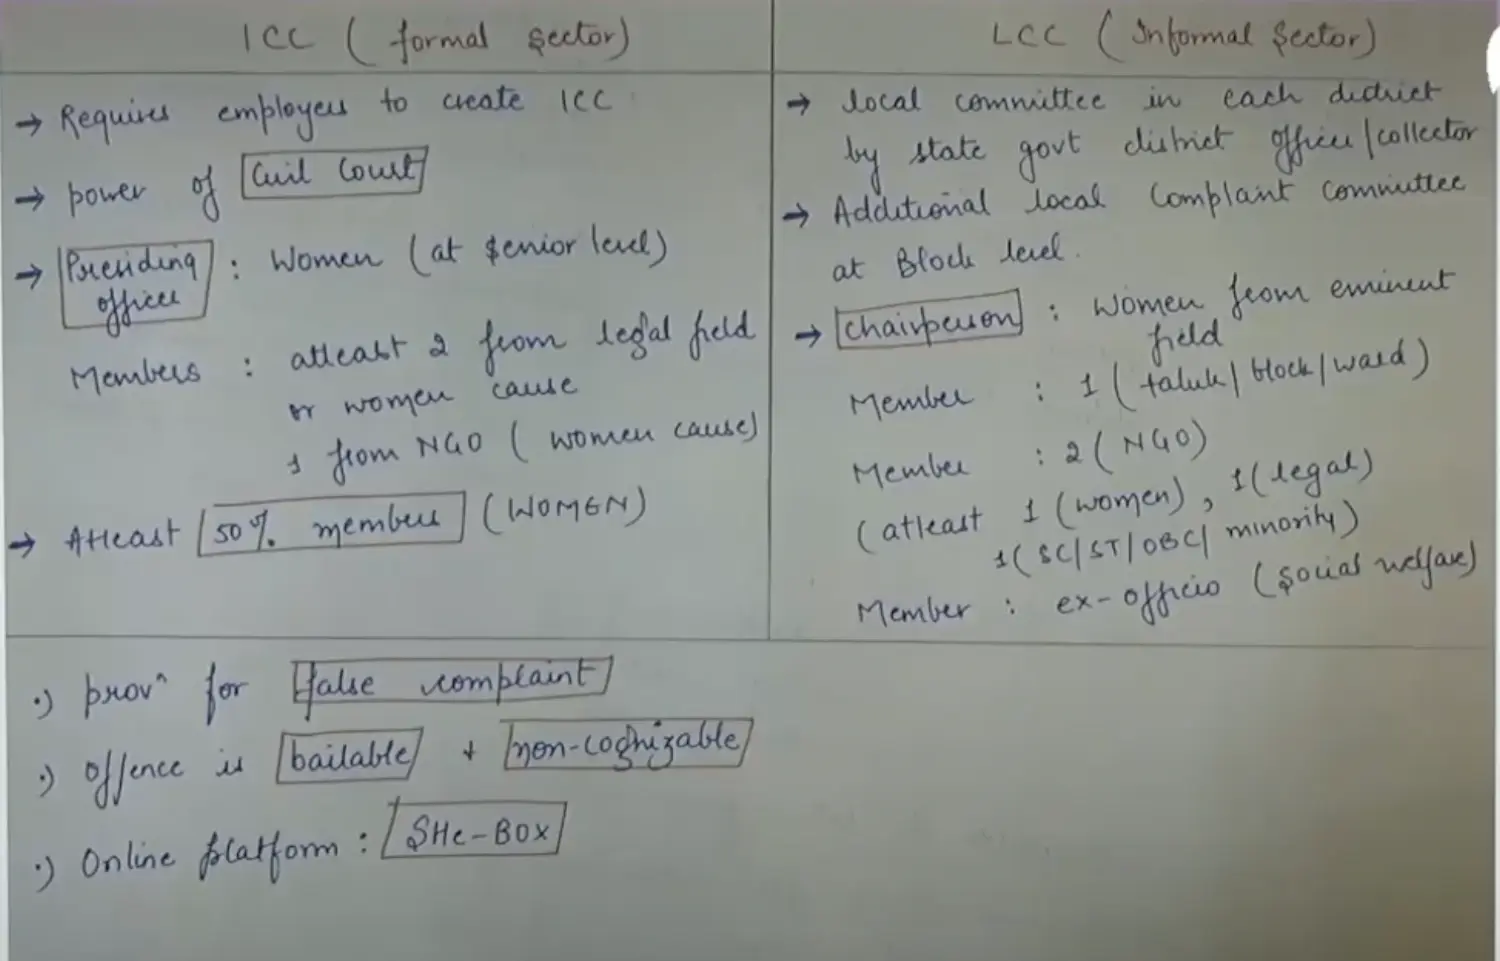 ICC ( formal sector)
→ Requires employers to create ICC
→ power of Civil Court
→ Presiding : Women (at senior level)
officer
Members : atleast 2 from legal field
or women cause
1 from NGO ( women cause)
→ Atleast 50% members (WOMEN)
LCC ( Informal Sector)
→ local committee in each district
by state govt district officer/collector
→ Additional local Complaint Committee
at Block level.
→ Chairperson : Women from eminent
field
Member : 1 ( taluk/ block/ward)
Member : 2 ( NGO)
(atleast 1 (women) , 1(legal)
1( SC/ ST/ OBC/ minority)
Member : ex-officio (social welfare)
·) provⁿ for false complaint
·) offence is bailable + non-cognizable
·) Online platform : SHe-BOX